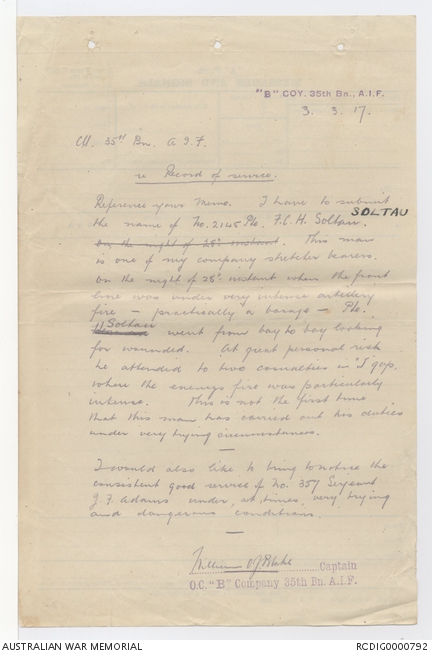 "B" COY. 35th Bn., A.I.F.
3. 3. 17.
35th Bn. A I F.
re Record of service.
Reference your Memo. I have to submit
the name of No. 2145 Pte. F.C.H. Soltau. SOLTAU
On the night of 28th instant. This man
is one of my company stretcher bearers.
On the night of 28th instant when the front
line was under very intense artillery
fire – practically a barage – Pte.
Soltau went from bay to bay looking
for wounded. At great personal risk
he attended to two casualties in "J" gap.
where the enemys fire was particularly
intense. This is not the first time
that this man has carried out his duties
under very trying circumstances.
I would also like to bring to notice the
consistent good service of No. 357 Sergeant
J. F. Adams under, at times, very trying
and dangerous conditions.
William Captain
O.C. "B" Company 35th Bn. A.I.F.
AUSTRALIAN WAR MEMORIAL
RCDIG0000792